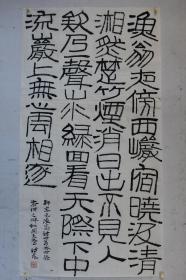 漁翁夜傍西巖宿曉汲清
湘然楚竹煙消日出不見人
欸乃聲山水綠回看天際下中
流巖上無心雲相逐